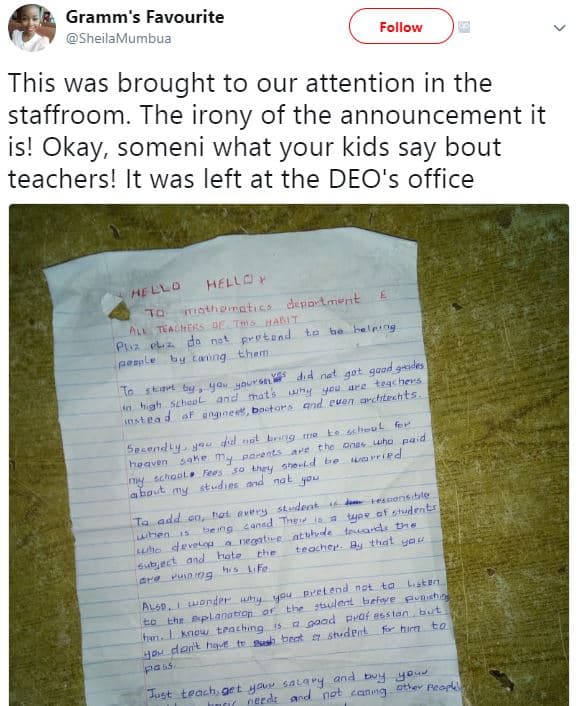 Gramm's Favourite
@SheilaMumbua
Follow
This was brought to our attention in the
staffroom. The irony of the announcement it
is! Okay, someni what your kids say bout
teachers! It was left at the DEO's office
HELLO HELLO
TO mathematics department E
ALL TEACHERS OF THIS HABIT
Pliz pliz do not pretend to be helping
people by caning them
To start by, you yourselves did not get good grades
in high school and that's why you are teachers
instead of engineers, Doctors and even archtechts.
Secondly, you did not bring me to school for
heaven sake my parents are the ones who paid
my school fees so they should be worried
about my studies and not you
To add on, not every student is responsible
when is being caned Their is a type of students
who develop a negative attitude towards the
subject and hate the teacher. By that you
are ruining his life
Also, I wonder why you pretend not to listen
to the explanation of the student before punishing
him. I know teaching is a good profession, but
you don't have to beat a student for him to
pass.
Just teach, get your salary and buy your
basic needs and not caning other people